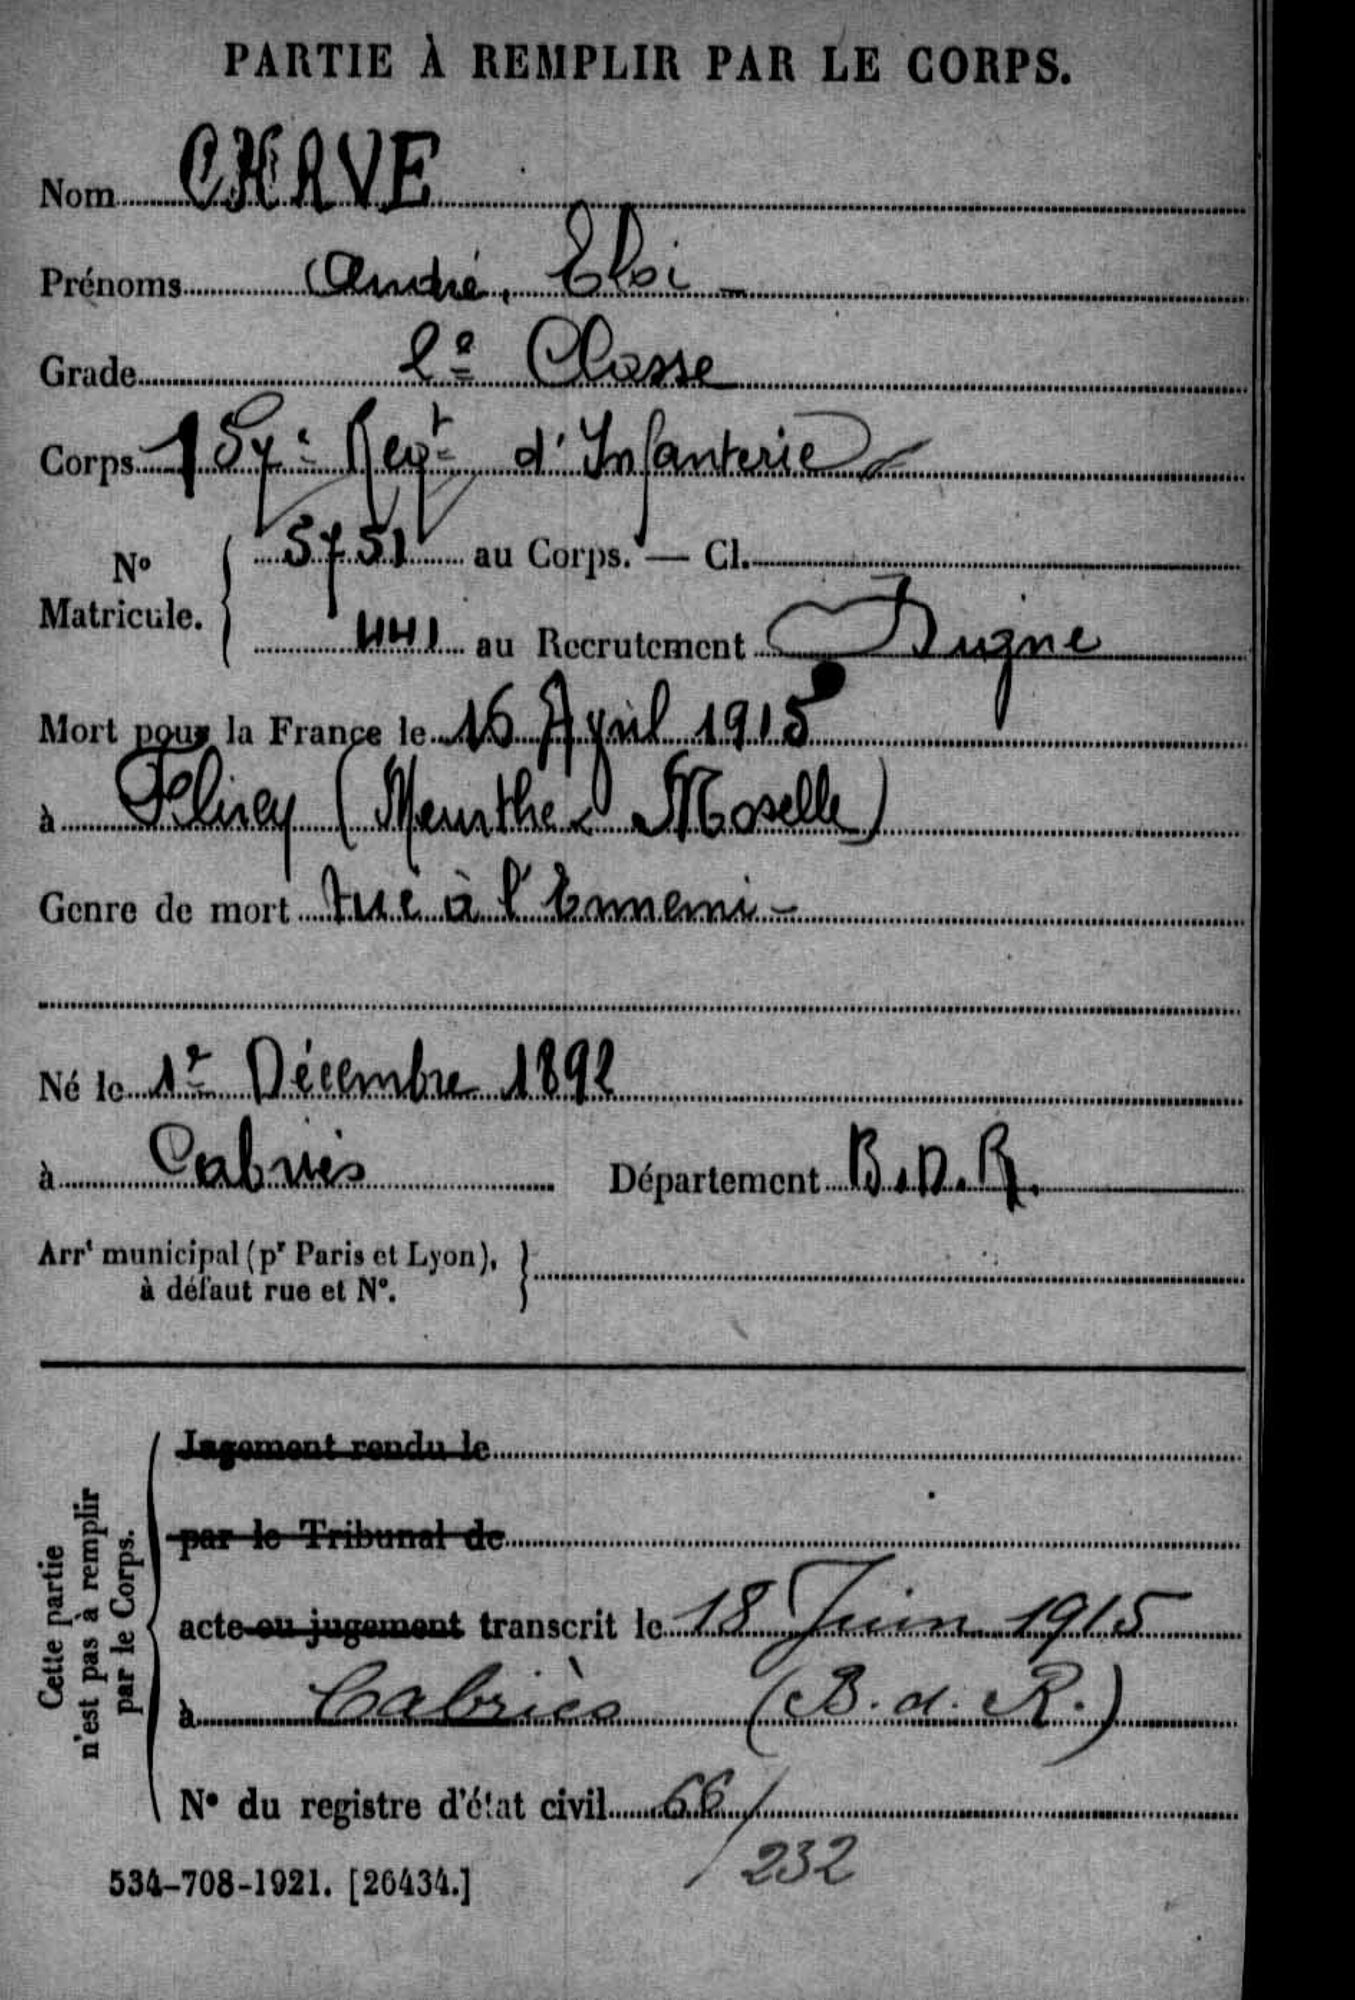 PARTIE À REMPLIR PAR LE CORPS.
Nom CHAVE
Prénoms André, Eloi -
Grade 2e Classe
Corps 157e Regt d'Infanterie
No Matricule. { 5751 au Corps. — Cl.
441 au Recrutement Digne
Mort pour la France le 16 Avril 1915
à Flirey (Meurthe & Moselle)
Genre de mort tué à l'Ennemi -
Né le 1er Décembre 1892
à Cabriès Département B.D.R.
Arrt municipal (pr Paris et Lyon),
à défaut rue et N°.
Cette partie
n'est pas à remplir
par le Corps.
Jugement rendu le
par le Tribunal de
acte ou jugement transcrit le 18 Juin 1915
à Cabriès (B. d. R.)
N° du registre d'état civil 66/
232
534-708-1921. [26434.]